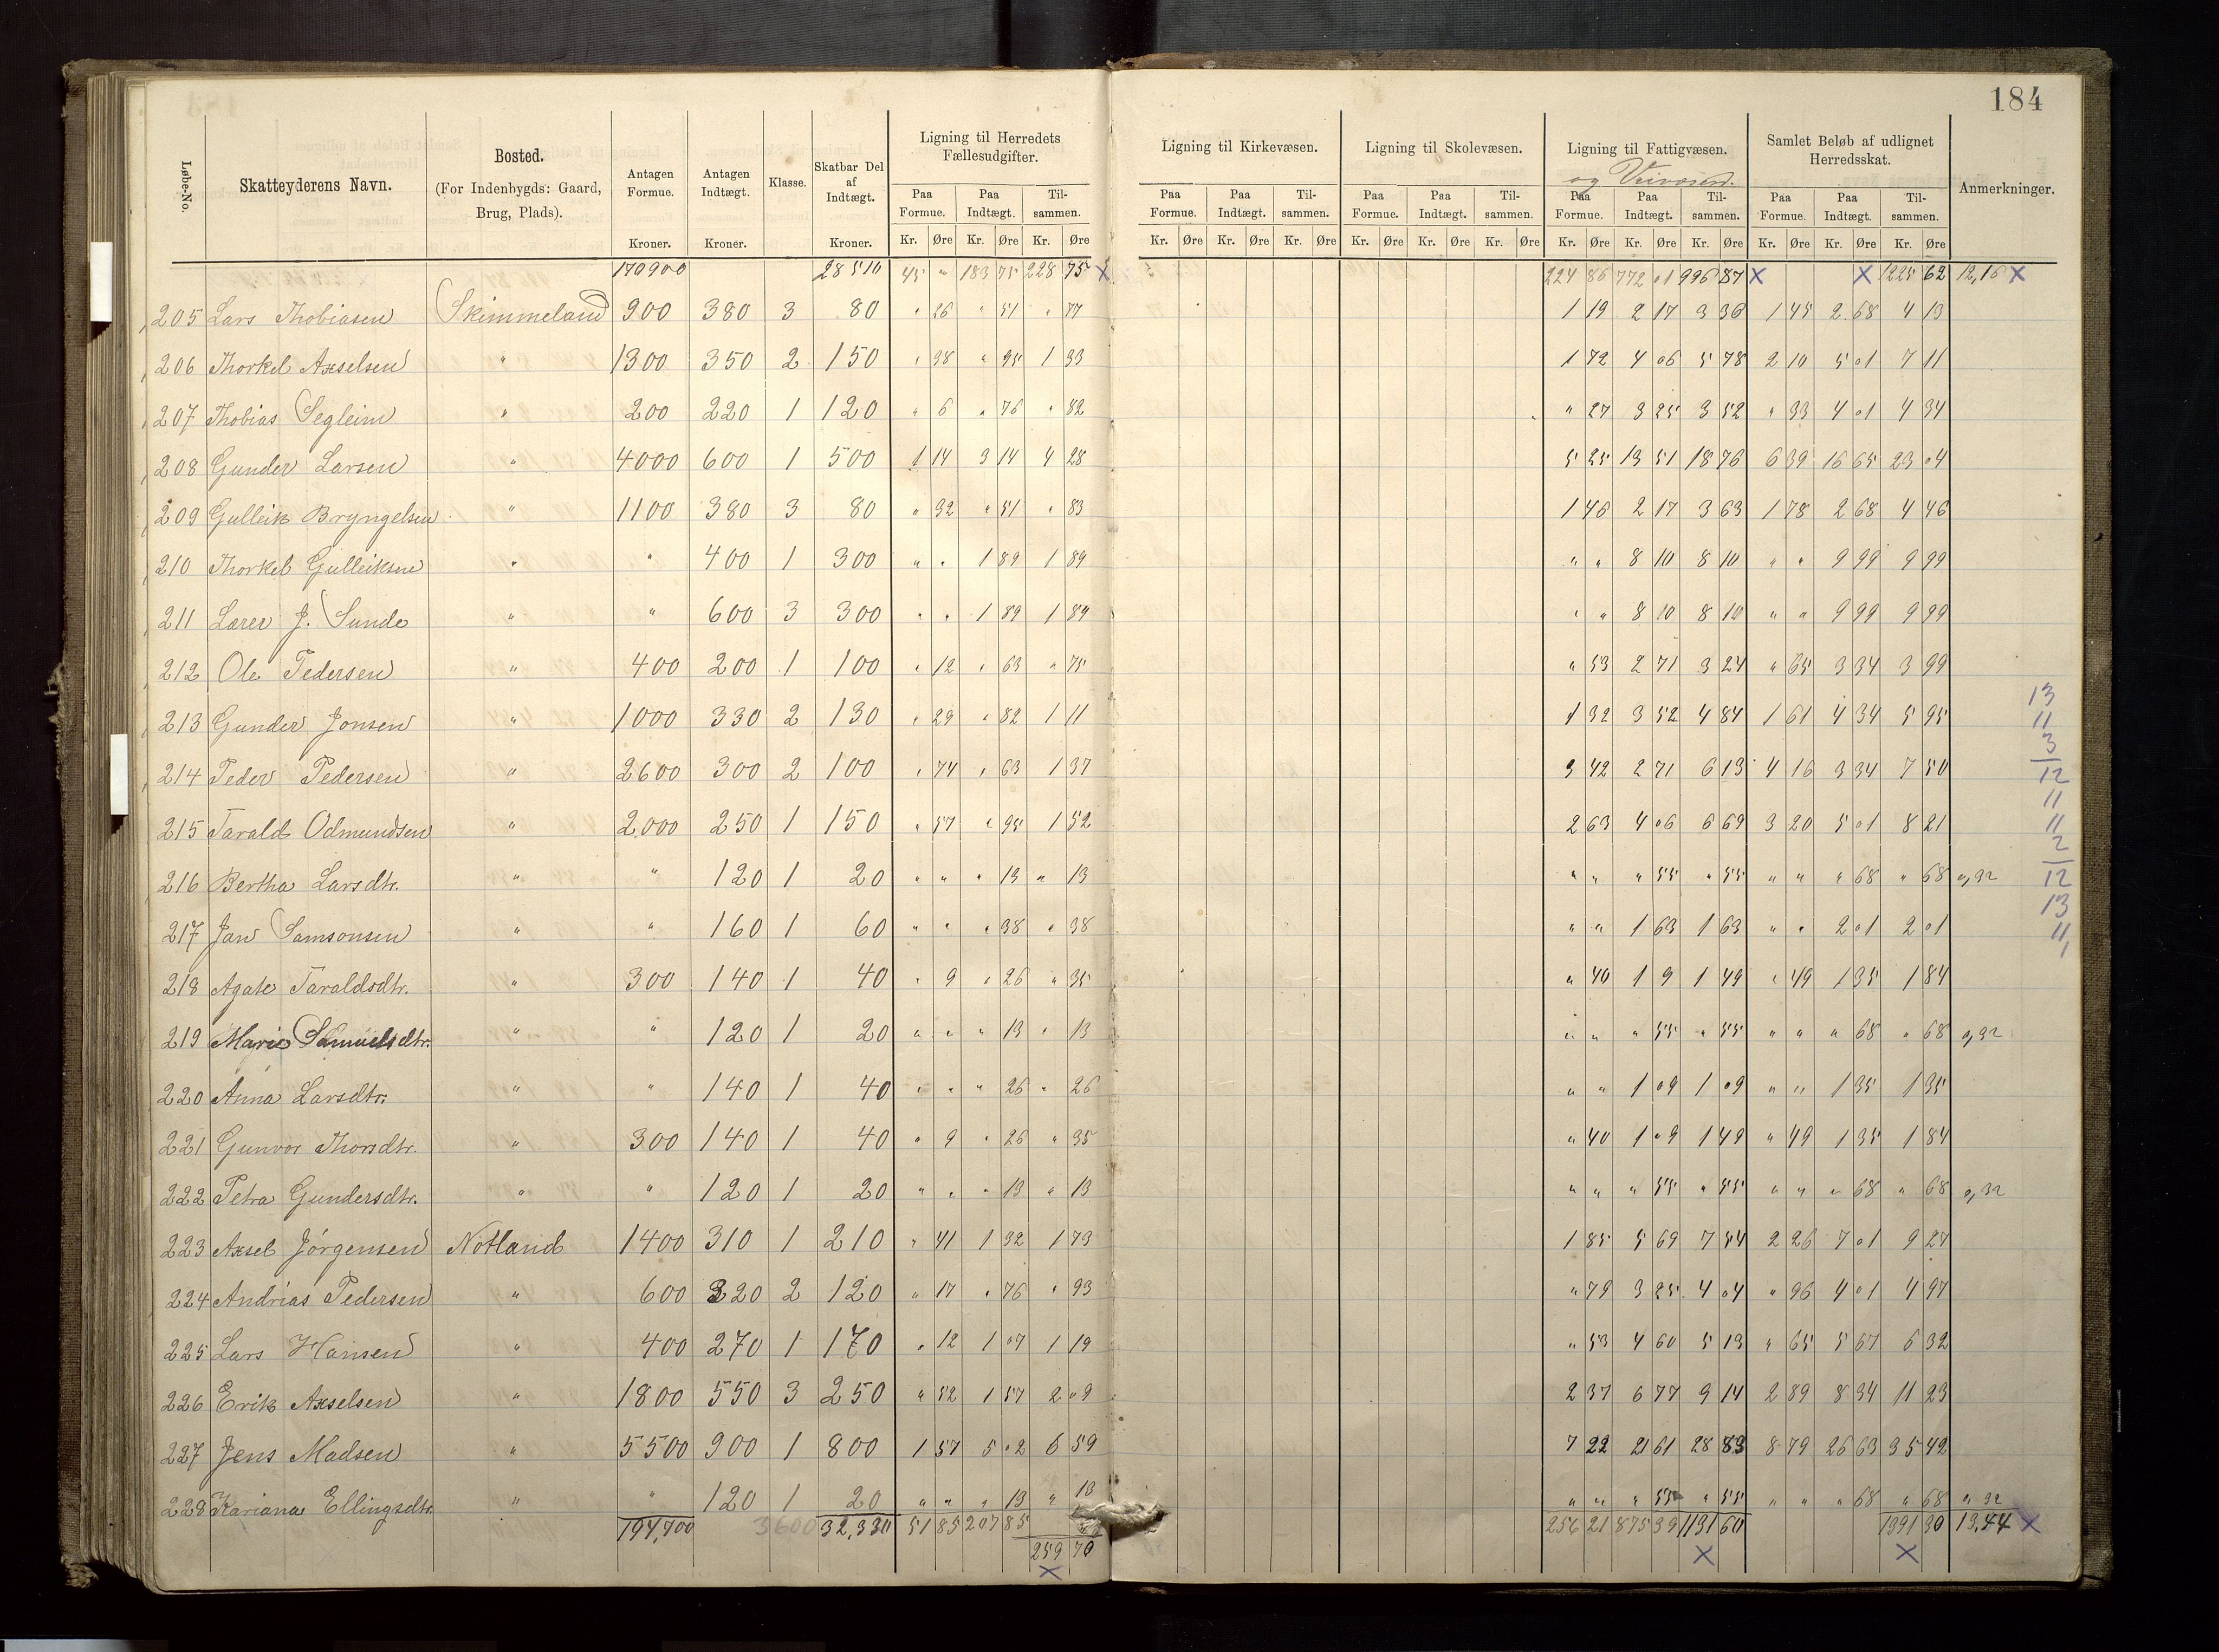 184
Løbe-No.
Skatteyderens Navn.
Bosted.
(For Indenbygds: Gaard, Brug, Plads).
Antagen Formue.
Kroner.
Antagen Indtægt.
Kroner.
Klasse.
Skatbar Del af Indtægt.
Kroner.
Ligning til Herredets Fællesudgifter.
Paa Formue. Paa Indtægt. Til-sammen.
Kr. Øre Kr. Øre Kr. Øre
Ligning til Kirkevæsen.
Paa Formue. Paa Indtægt. Til-sammen.
Kr. Øre Kr. Øre Kr. Øre
Ligning til Skolevæsen.
Paa Formue. Paa Indtægt. Til-sammen.
Kr. Øre Kr. Øre Kr. Øre
Ligning til Fattigvæsen.
og Veivæsen.
Paa Formue. Paa Indtægt. Til-sammen.
Kr. Øre Kr. Øre Kr. Øre
Samlet Beløb af udlignet Herredsskat.
Paa Formue. Paa Indtægt. Til-sammen.
Kr. Øre Kr. Øre Kr. Øre
Anmerkninger.
170900 28510 45 " 183 75 228 75 x 224 86 772 01 996 87 x x 1225 62 12,16 x
205 Lars Thobiasen Skimmeland 900 380 3 80 " 26 " 51 " 77 1 19 2 17 3 36 1 45 2 68 4 13
206 Thorkel Axselsen " 1300 350 2 150 " 38 " 95 1 33 1 72 4 06 5 78 2 10 5 01 7 11
207 Thobias Segleim " 200 220 1 120 " 6 " 76 " 82 " 27 3 25 3 52 " 33 4 01 4 34
208 Gunder Larsen " 4000 600 1 500 1 14 3 14 4 28 5 25 13 51 18 76 6 39 16 65 23 04
209 Gulleik Bryngelsen " 1100 380 3 80 " 32 " 51 " 83 1 46 2 17 3 63 1 78 2 68 4 46
210 Thorkel Gulleiksen " " 400 1 300 " " 1 89 1 89 " " 8 10 8 10 " " 9 99 9 99
211 Lærer J. Sunde " " 600 3 300 " " 1 89 1 89 " " 8 10 8 10 " " 9 99 9 99
212 Ole Pedersen " 400 200 1 100 " 12 " 63 " 75 " 53 2 71 3 24 " 65 3 34 3 99
213 Gunder Jonsen " 1000 330 2 130 " 29 " 82 1 11 1 32 3 52 4 84 1 61 4 34 5 95
214 Peder Pedersen " 2600 300 2 100 " 74 " 63 1 37 3 42 2 71 6 13 4 16 3 34 7 50
215 Tarald Odmundsen " 2000 250 1 150 " 57 " 95 1 52 2 63 4 06 6 69 3 20 5 01 8 21
216 Bertha Larsdtr. " " 120 1 20 " " " 13 " 13 " " " 55 " 55 " " " 68 " 68 ",32
217 Jan Samsonsen " " 160 1 60 " " " 38 " 38 " " 1 63 1 63 " " 2 01 2 01
218 Agate Taraldsdtr. " 300 140 1 40 " 9 " 26 " 35 " 40 1 9 1 49 " 49 1 35 1 84
219 Marie Samuelsdtr. " " 120 1 20 " " " 13 " 13 " " " 55 " 55 " " " 68 " 68 0,32
220 Anna Larsdtr. " " 140 1 40 " " " 26 " 26 " " 1 09 1 09 " " 1 35 1 35
221 Gunvor Thorsdtr. " 300 140 1 40 " 9 " 26 " 35 " 40 1 09 1 49 " 49 1 35 1 84
222 Petra Gundersdtr. " " 120 1 20 " " " 13 " 13 " " " 55 " 55 " " " 68 " 68 0,32
223 Axsel Jørgensen Nötland 1400 310 1 210 " 41 1 32 1 73 1 85 5 69 7 54 2 26 7 01 9 27
224 Andrias Pedersen " 600 320 2 120 " 17 " 76 " 93 " 79 3 25 4 04 " 96 4 01 4 97
225 Lars Hansen " 400 270 1 170 " 12 1 07 1 19 " 53 4 60 5 13 " 65 5 67 6 32
226 Erik Axselsen " 1800 550 3 250 " 52 1 57 2 09 2 37 6 77 9 14 2 89 8 34 11 23
227 Jens Madsen " 5500 900 1 800 1 57 5 02 6 59 7 22 21 61 28 83 8 79 26 63 35 42
228 Kariana Ellingsdtr. " " 120 1 20 " " " 13 " 13 " " " 55 " 55 " " " 68 " 68 ",32
194,700 3600 32,330 51 85 207 85 256 21 875 39 1131 60 1391 30 13,44 x
259 70
x x x
13
11
3
12
11
11
2
12
13
11
1